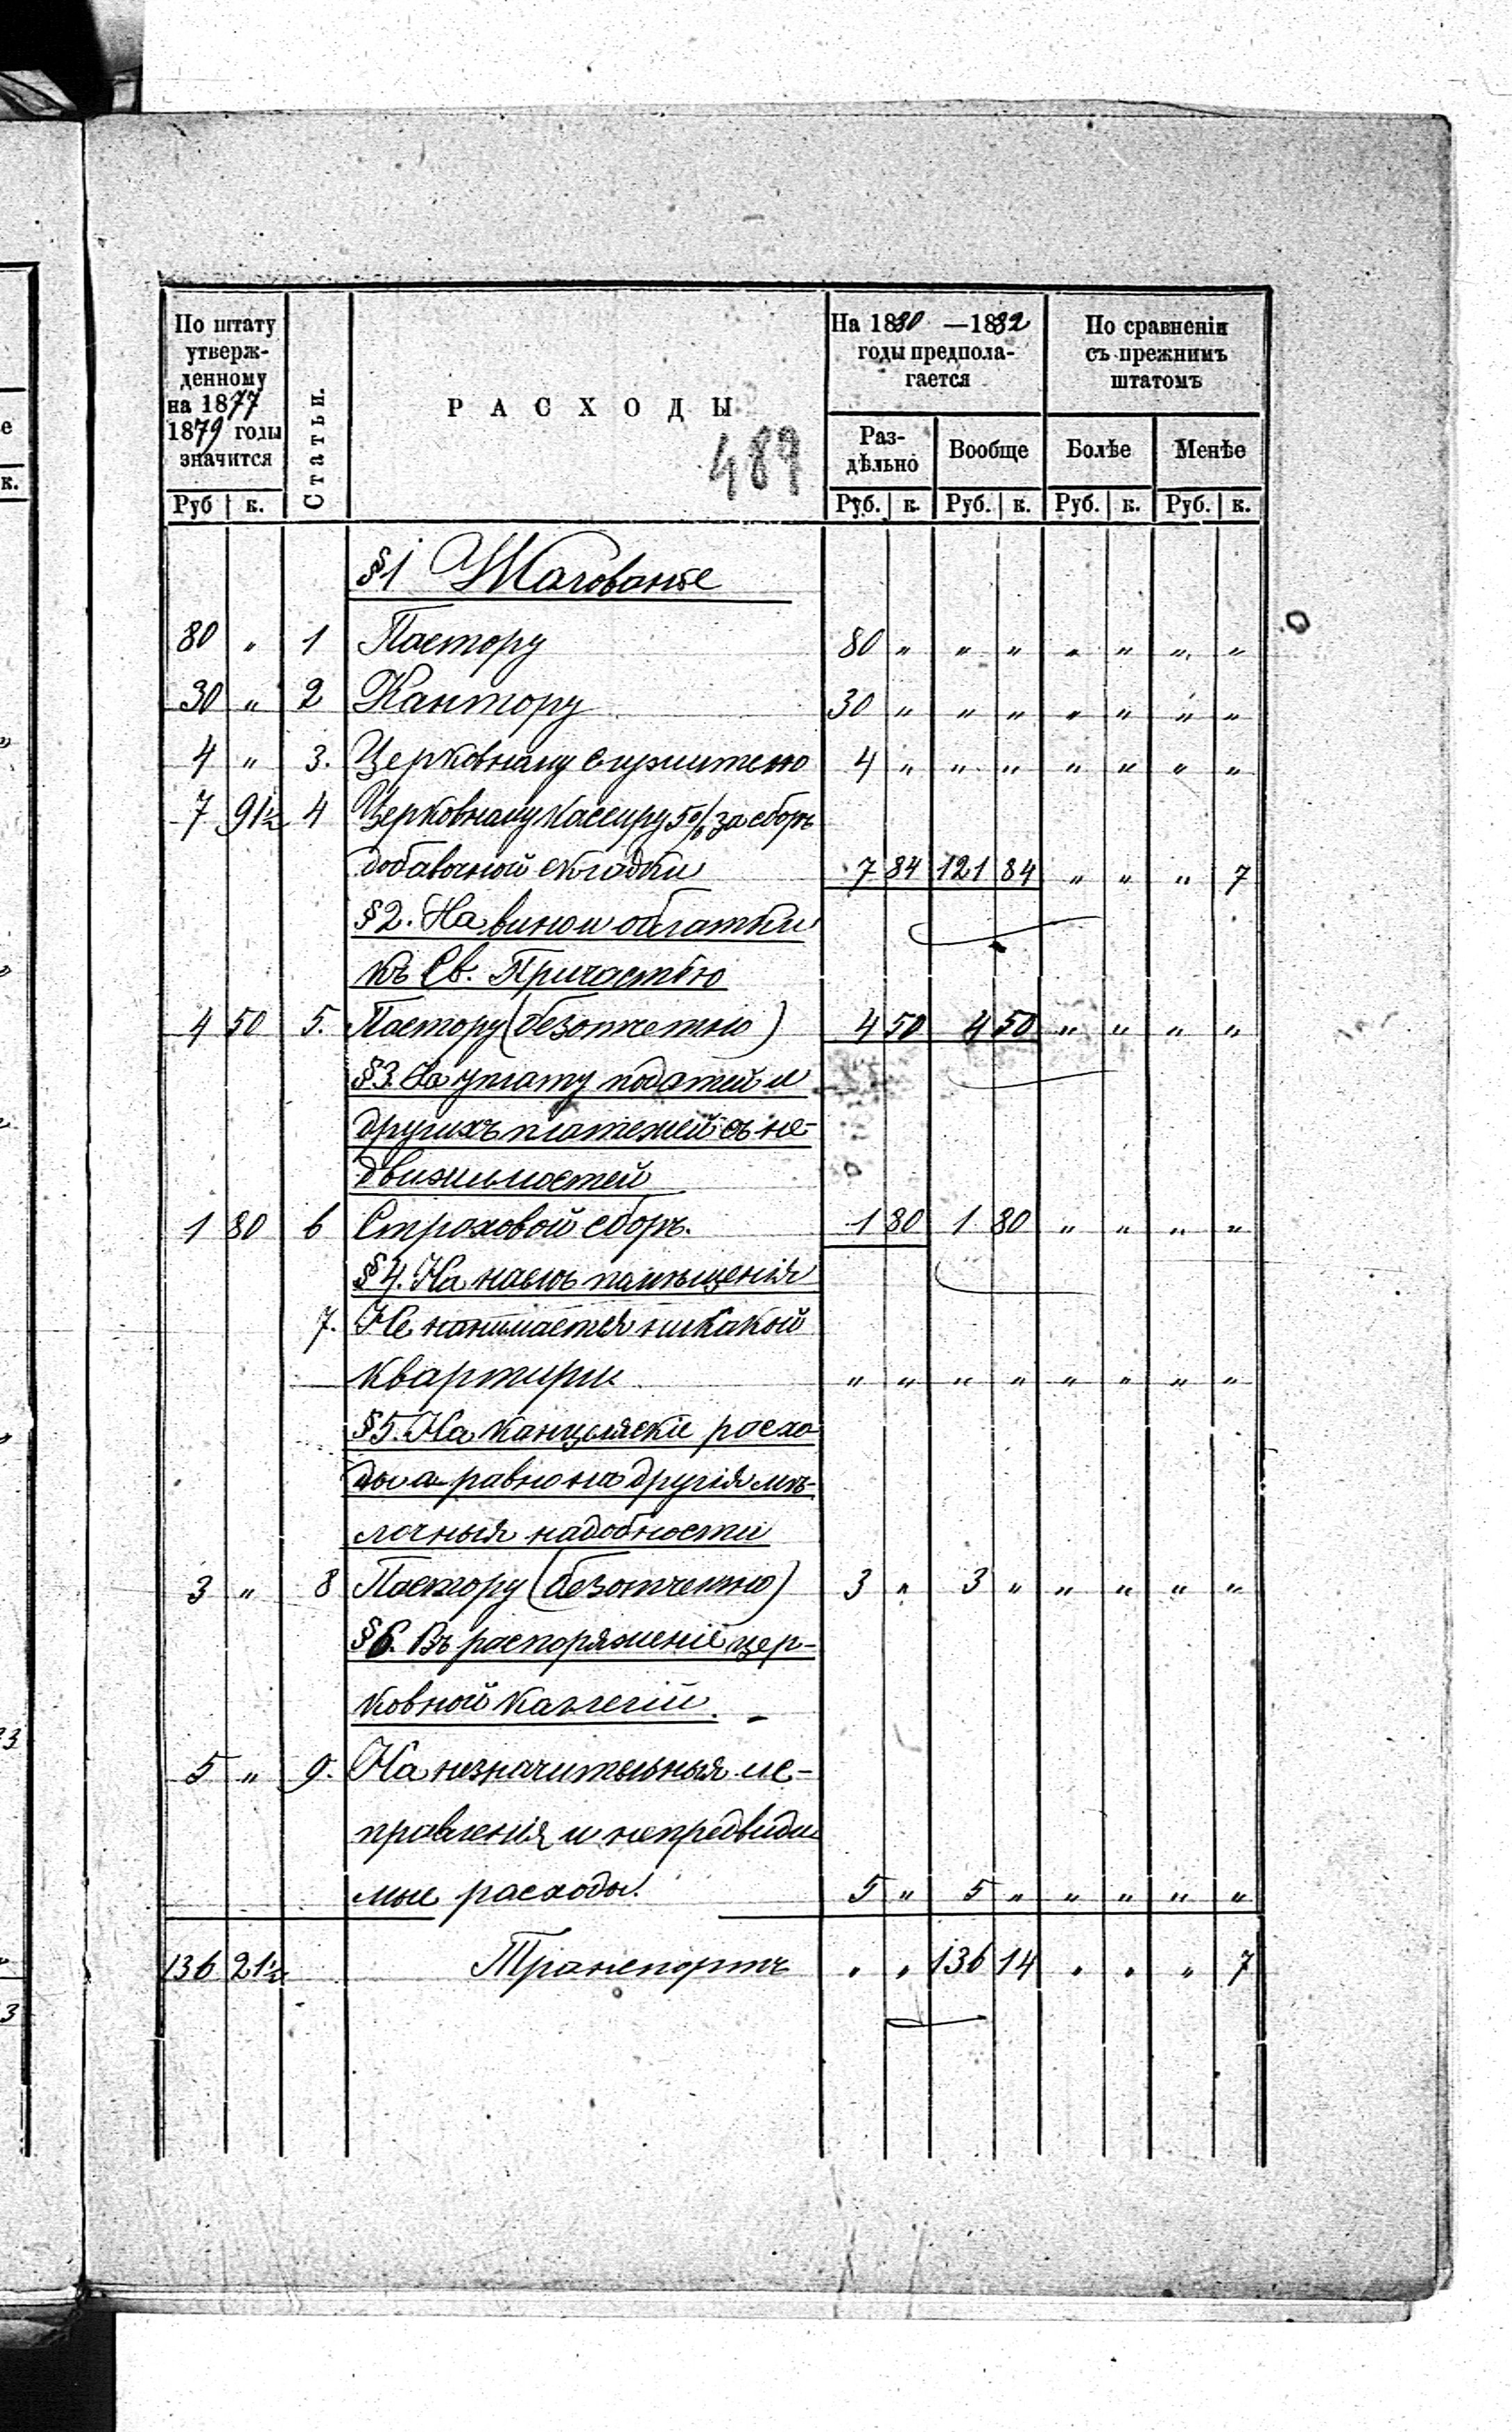 По штату утверж-денному на 1877 1879 годы значится
Статьи.
РАСХОДЫ
489
На 1880 —1882 годы предпола-гается
По сравненію съ прежнимъ штатомъ
Раз-дѣльно
Вообще
Болѣе
Менѣе
Руб к. Руб. к. Руб. к. Руб. к. Руб. к.
§1 Жалованье
80 „ 1 Пастору 80 „ „ „ „ „ „ „
30 „ 2 Кантору 30 „ „ „ „ „ „ „
4 „ 3. Церковному служителю 4 „ „ „ „ „ „ „
7 91½ 4 Церковному кассиру 5% за сборъ
добавочной складки 7 84 121 84 „ „ „ 7
§2. На вино и облатки
къ Св. Причастію
4 50 5. Пастору (безотчетно) 4 50 4 50 „ „ „ „
§3. На уплату податей и
другихъ платежей съ не-
движимостей
1 80 6 Страховой сборъ. 1 80 1 80 „ „ „ „
§4. На наемъ помѣщенія
7. Не нанимается никакой
квартиры „ „ „ „ „ „ „ „
§5. На канцелярскіе расхо
ды а равно на другія мѣ-
лочныя надобности
3 „ 8 Пастору (безотчетно) 3 „ 3 „ „ „ „ „
§6. Въ распоряженіе цер-
ковной коллегіи.
5 „ 9. На незначительныя ис-
правленія и непредвиди
мые расходы. 5 „ 5 „ „ „ „ „
136 21½ Транспортъ „ „ 136 14 „ „ „ 7